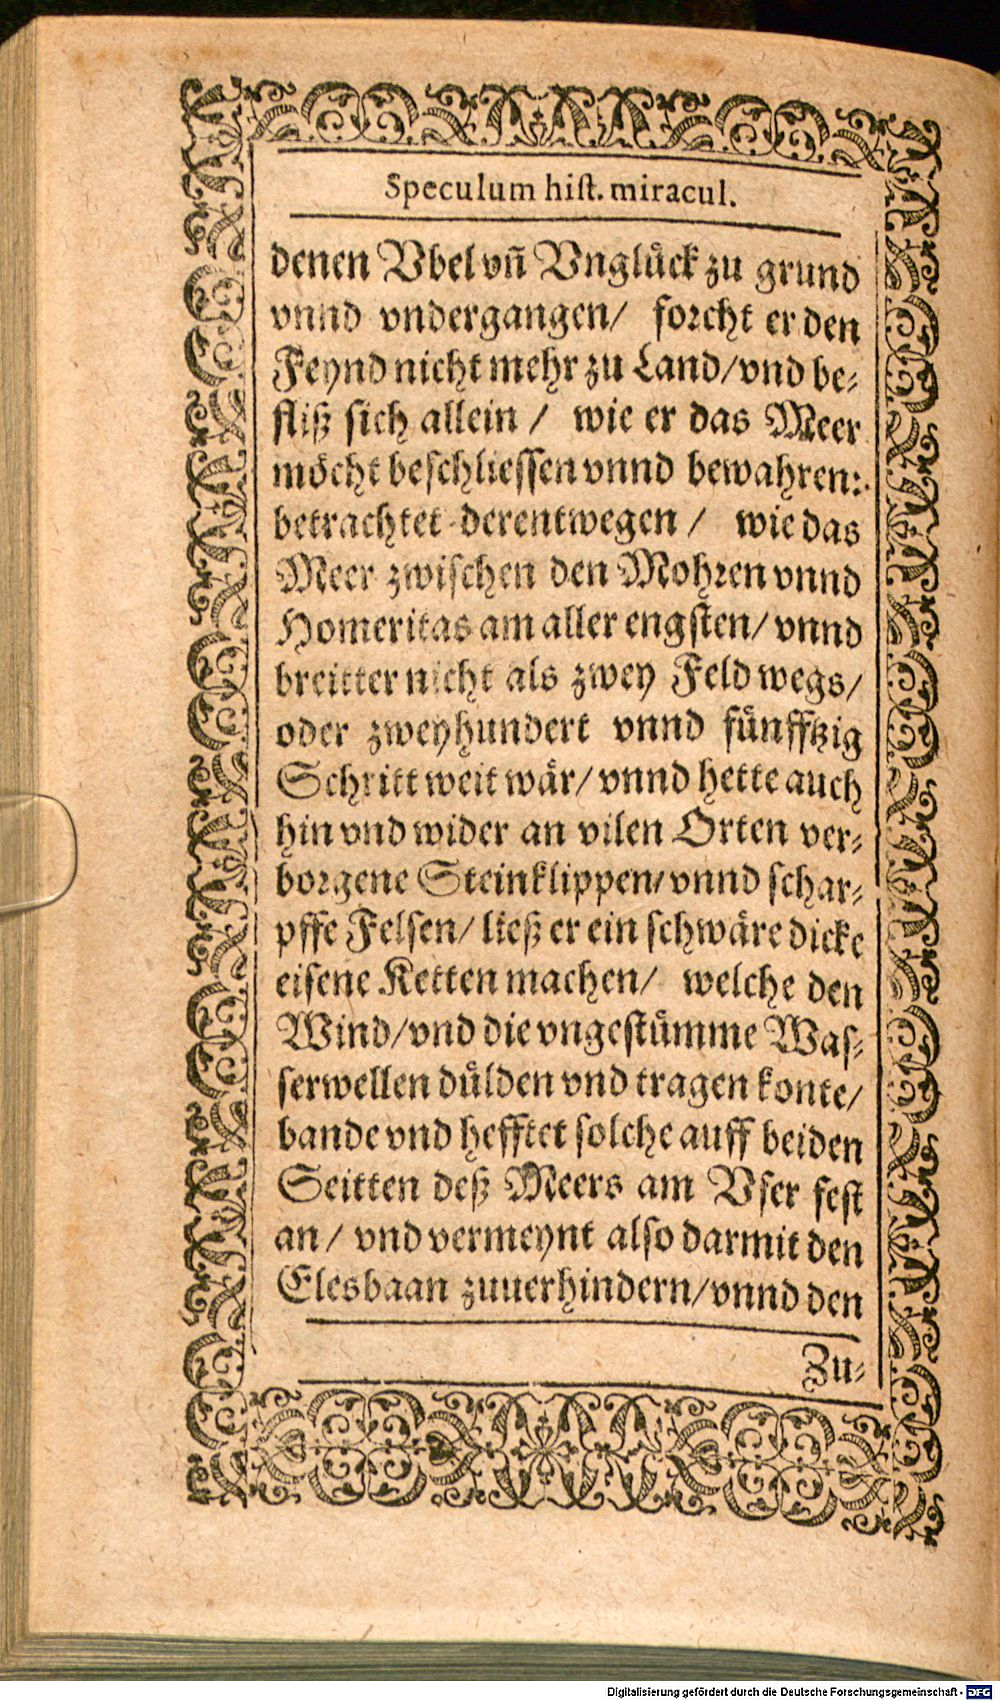 Speculum hiſt. miracul.
denen Vbel vñ Vnglück zu grund
vnnd vndergangen/ forcht er den
Feynd nicht mehr zu Land/vnd be-
fliß ſich allein / wie er das Meer
möcht beſchlieſſen vnnd bewahren:
betrachtet derentwegen / wie das
Meer zwiſchen den Mohren vnnd
Homeritas am aller engſten/ vnnd
breitter nicht als zwey Feld wegs/
oder zweyhundert vnnd fünfftzig
Schritt weit wär/ vnnd hette auch
hin vnd wider an vilen Orten ver-
borgene Steinklippen/ vnnd ſchar-
pffe Felſen/ ließ er ein ſchwäre dicke
eiſene Ketten machen/ welche den
Wind/vnd die vngeſtümme Waſ-
ſerwellen dülden vnd tragen konte/
bande vnd hefftet ſolche auff beiden
Seitten deß Meers am Vfer feſt
an/ vnd vermeynt alſo darmit den
Elesbaan zuuerhindern/vnnd den
Zu-
Digitalisierung gefördert durch die Deutsche Forschungsgemeinschaft - DFG